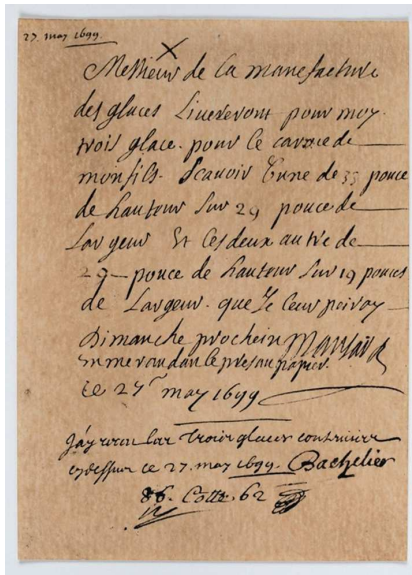 27. may 1699.
Messieurs de la manefacture
des glaces Liuereront pour moy
trois glace. pour le carosse de
monfils. Scauoir l'une de 33 pouce
de hauteur sur 29 pouce de
Largeur Et les deux autre de
29 pouce de hauteur sur 19 pouces
de Largeur. que Je leur peiray
Dimanche prochein Mansard
En me randan le presan papier.
ce 27 may 1699
J'ay receu les trois glaces contenues
cydessus ce 27. may 1699. Bachelier
Cotte. 62